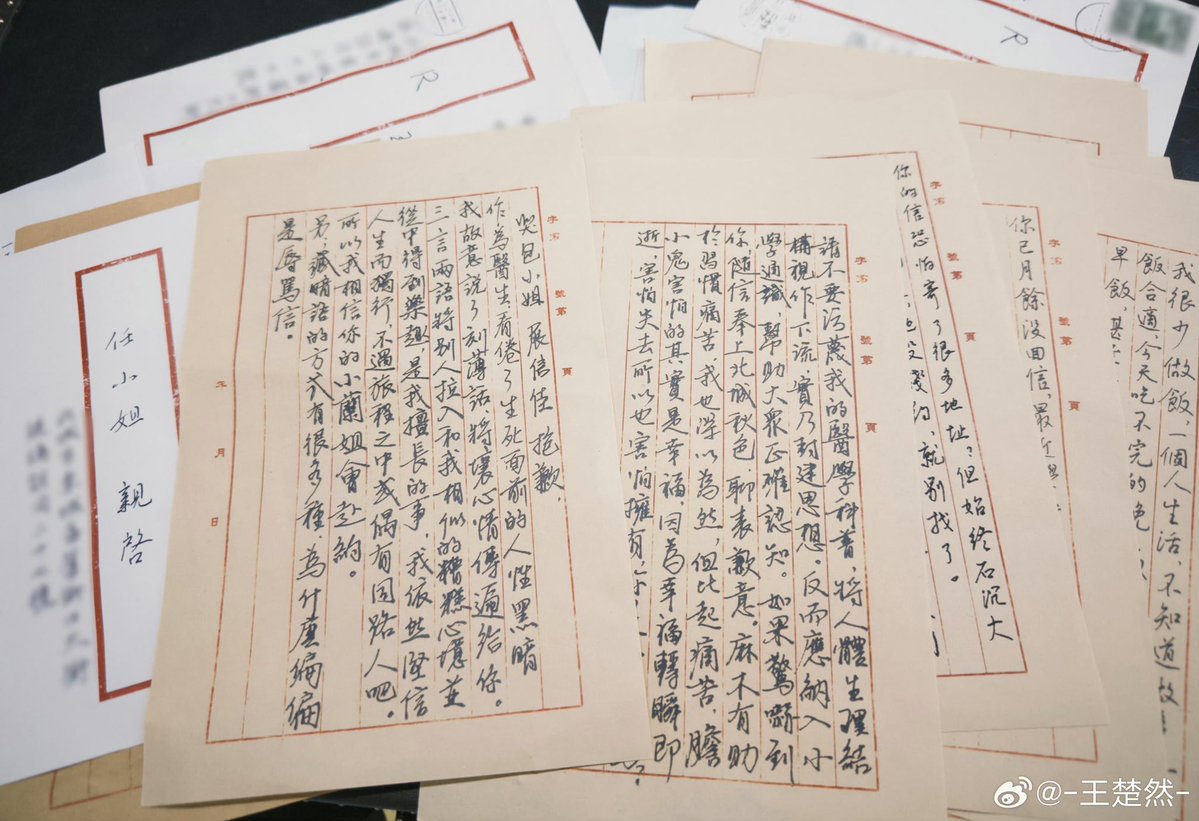 任小姐 親啓
字第 號第 頁
哭包小姐 展信佳 抱歉,
作為醫生,看倦了生死面前的人性黑暗
我故意說了刻薄話,將壞心情傳遍給你。
三言兩語將別人拉入和我相似的糟糕心境並
從中得到樂趣,是我擅長的事,我依然堅信
人生而獨行,不過旅程之中或偶有同路人吧。
所以我相信你的小蘭姐會赴約。
另,藏暗語的方式有很多種,為什麼編編
是辱罵信。
年 月 日
字第 號第 頁
請不要污蔑我的醫學科普,將人體生理結
構視作下流,實乃封建思想。反而應納入小
學通識,幫助大眾正確認知。如果驚嚇到
你,隨信奉上北城秋色,聊表歉意。麻木有助
於習慣痛苦,我也深以為然,但比起痛苦,膽
小鬼害怕的其實是幸福,因為幸福轉瞬即
逝,害怕失去所以也害怕擁有,
字第 號第 頁
你的信恐怕寄了很多地址?但始終石沉大
就別找了。
字第 號第 頁
你已月餘沒回信,最近
我很少做飯,一個人生活,不知道
飯合適,今天吃不完的
早飯,甚
R
R
@-王楚然-